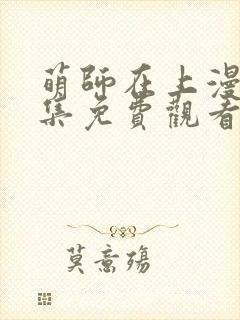 萌師在上漫
集免費觀看
莫意殤